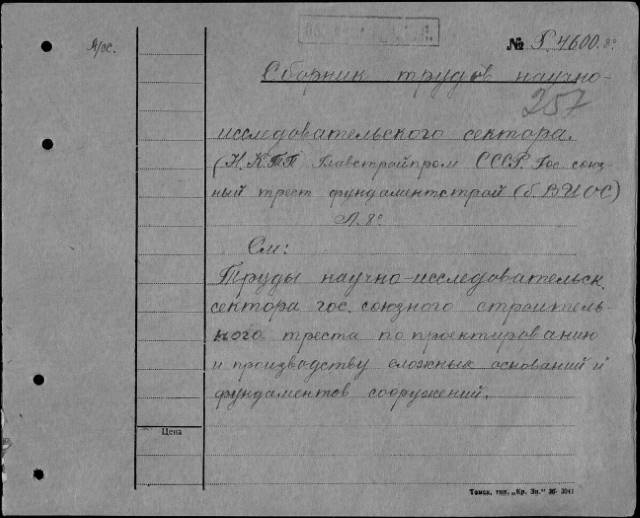 Рус.
№ P. 4600. 8º
Сборник трудов научно-
257
исследовательского сектора.
(Н.К.Т.П. Главстройпром СССР. Гос. союз-
ный трест фундаментстрой (б. ВИОС)
Л. 8º
См:
Труды научно-исследовательск.
сектора гос. союзного строитель-
ного треста по проектированию
и производству сложных оснований и
фундаментов сооружений.
Цена
Томск, тип. „Кр. Зн." 36- 3041